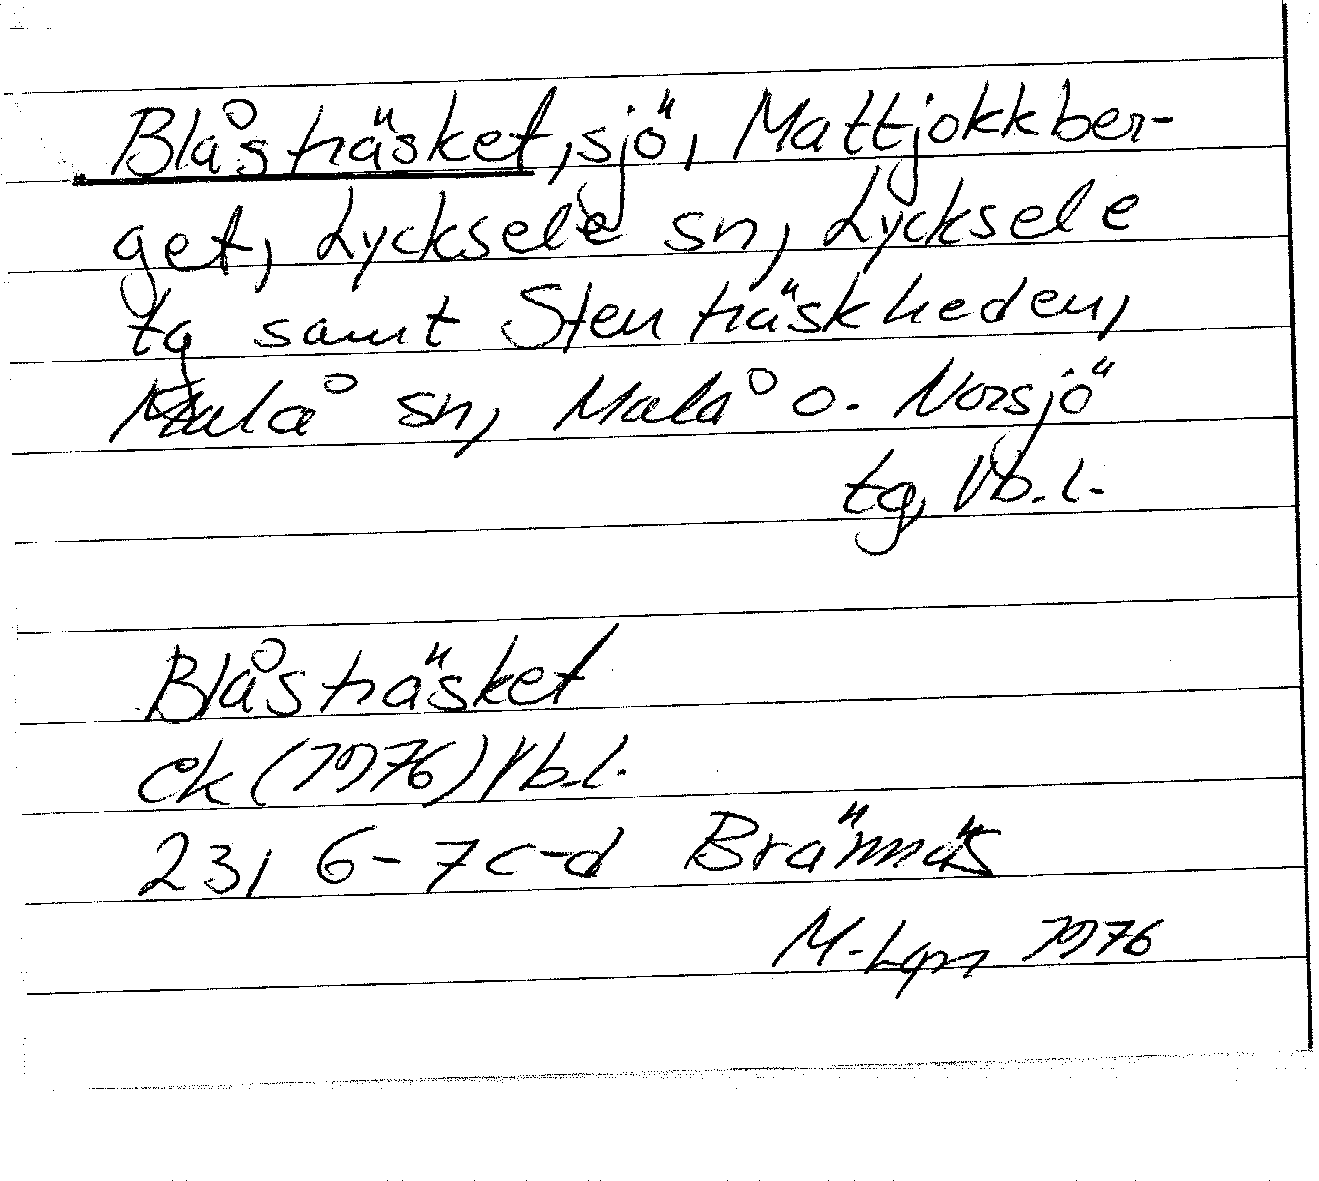 Blåsträsket, sjö, Mattjokkber-
get, Lycksele sn, Lycksele
tg samt Stenträskheden,
Malå sn, Malå o. Norsjö
tg, Vb.l.
Blåsträsket
ek (1976) Vb.l.
23I 6-7c-d Brännäs
M. Lgn 1976